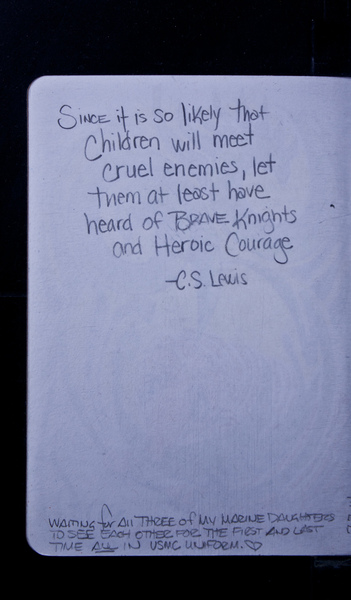 SINCE it is so likely that
Children will meet
cruel enemies, let
them at least have
heard of BRAVE Knights
and Heroic Courage
-C.S. Lewis
WAITING for All THREE of MY MARINE DAUGHTERS
TO SEE EACH OTHER FOR THE FIRST AND LAST
TIME ALL IN USMC UNIFORM. ♡